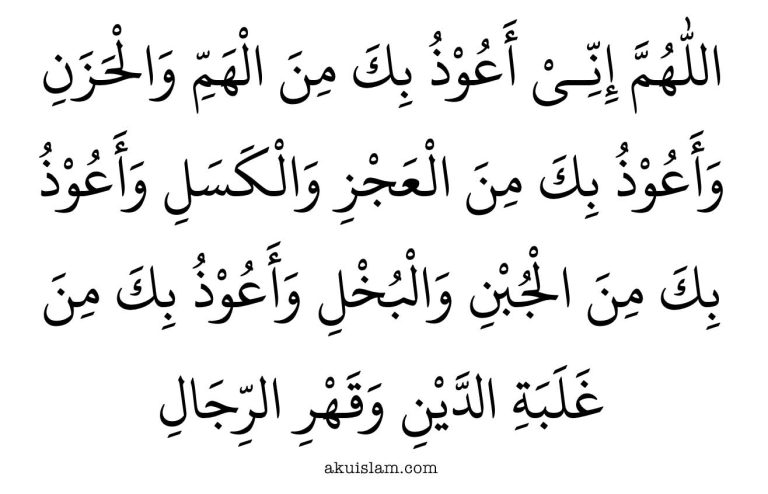 اللّٰهُمَّ إِنِّـىْ أَعُوْذُ بِكَ مِنَ الْهَمِّ وَالْحَزَنِ
وَأَعُوْذُ بِكَ مِنَ الْعَجْزِ وَالْكَسَلِ وَأَعُوْذُ
بِكَ مِنَ الْجُبْنِ وَالْبُخْلِ وَأَعُوْذُ بِكَ مِنَ
غَلَبَةِ الدَّيْنِ وَقَهْرِ الرِّجَالِ
akuislam.com